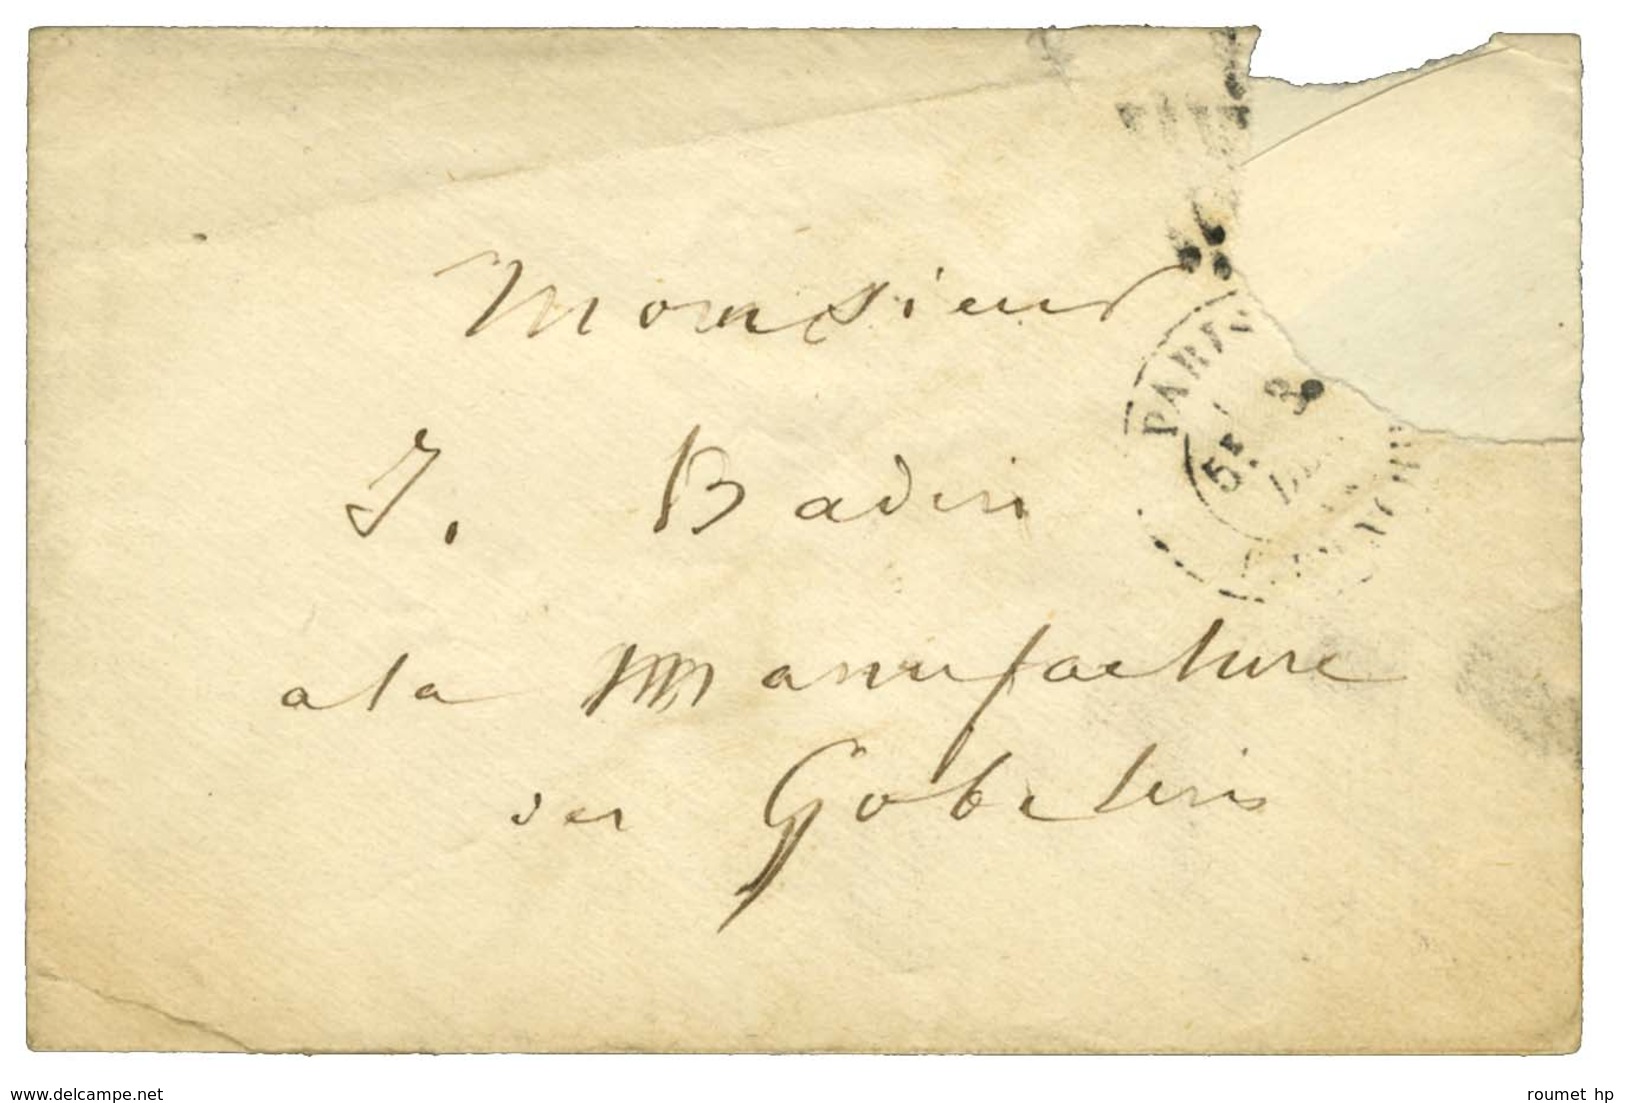 PARIS
5E
3
Monsieur
J. Badin
a la Manufacture
des Gobelins
www.delcampe.net
roumet hp